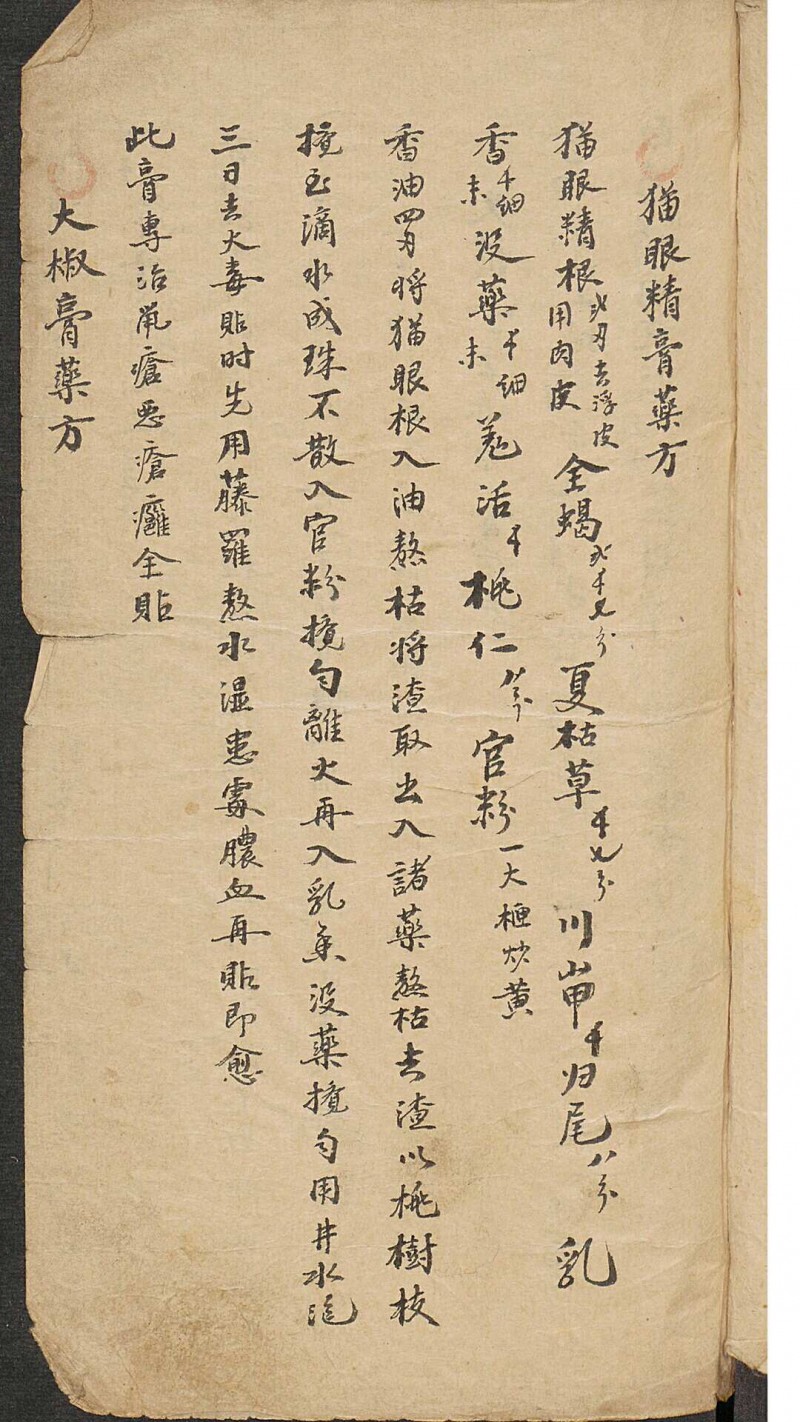 猫眼精膏藥方
猫眼精根弍刃去浮皮用肉皮 全蝎弍千七分 夏枯草千七分 川山甲千 归尾八分 乳
香千細末 没藥千細末 羌活千 桃仁八分 官粉一大匣炒黄
香油四刃将猫眼根入油熬枯将渣取出入諸藥熬枯去渣以桃樹枝
攪至滴水成珠不散入官粉攪匀離火再入乳香没藥攪匀用井水泡
三日去火毒貼时先用藤羅熬水湿患處膿血再貼即愈
此膏專治鼠瘡恶瘡癰全貼
大椒膏藥方